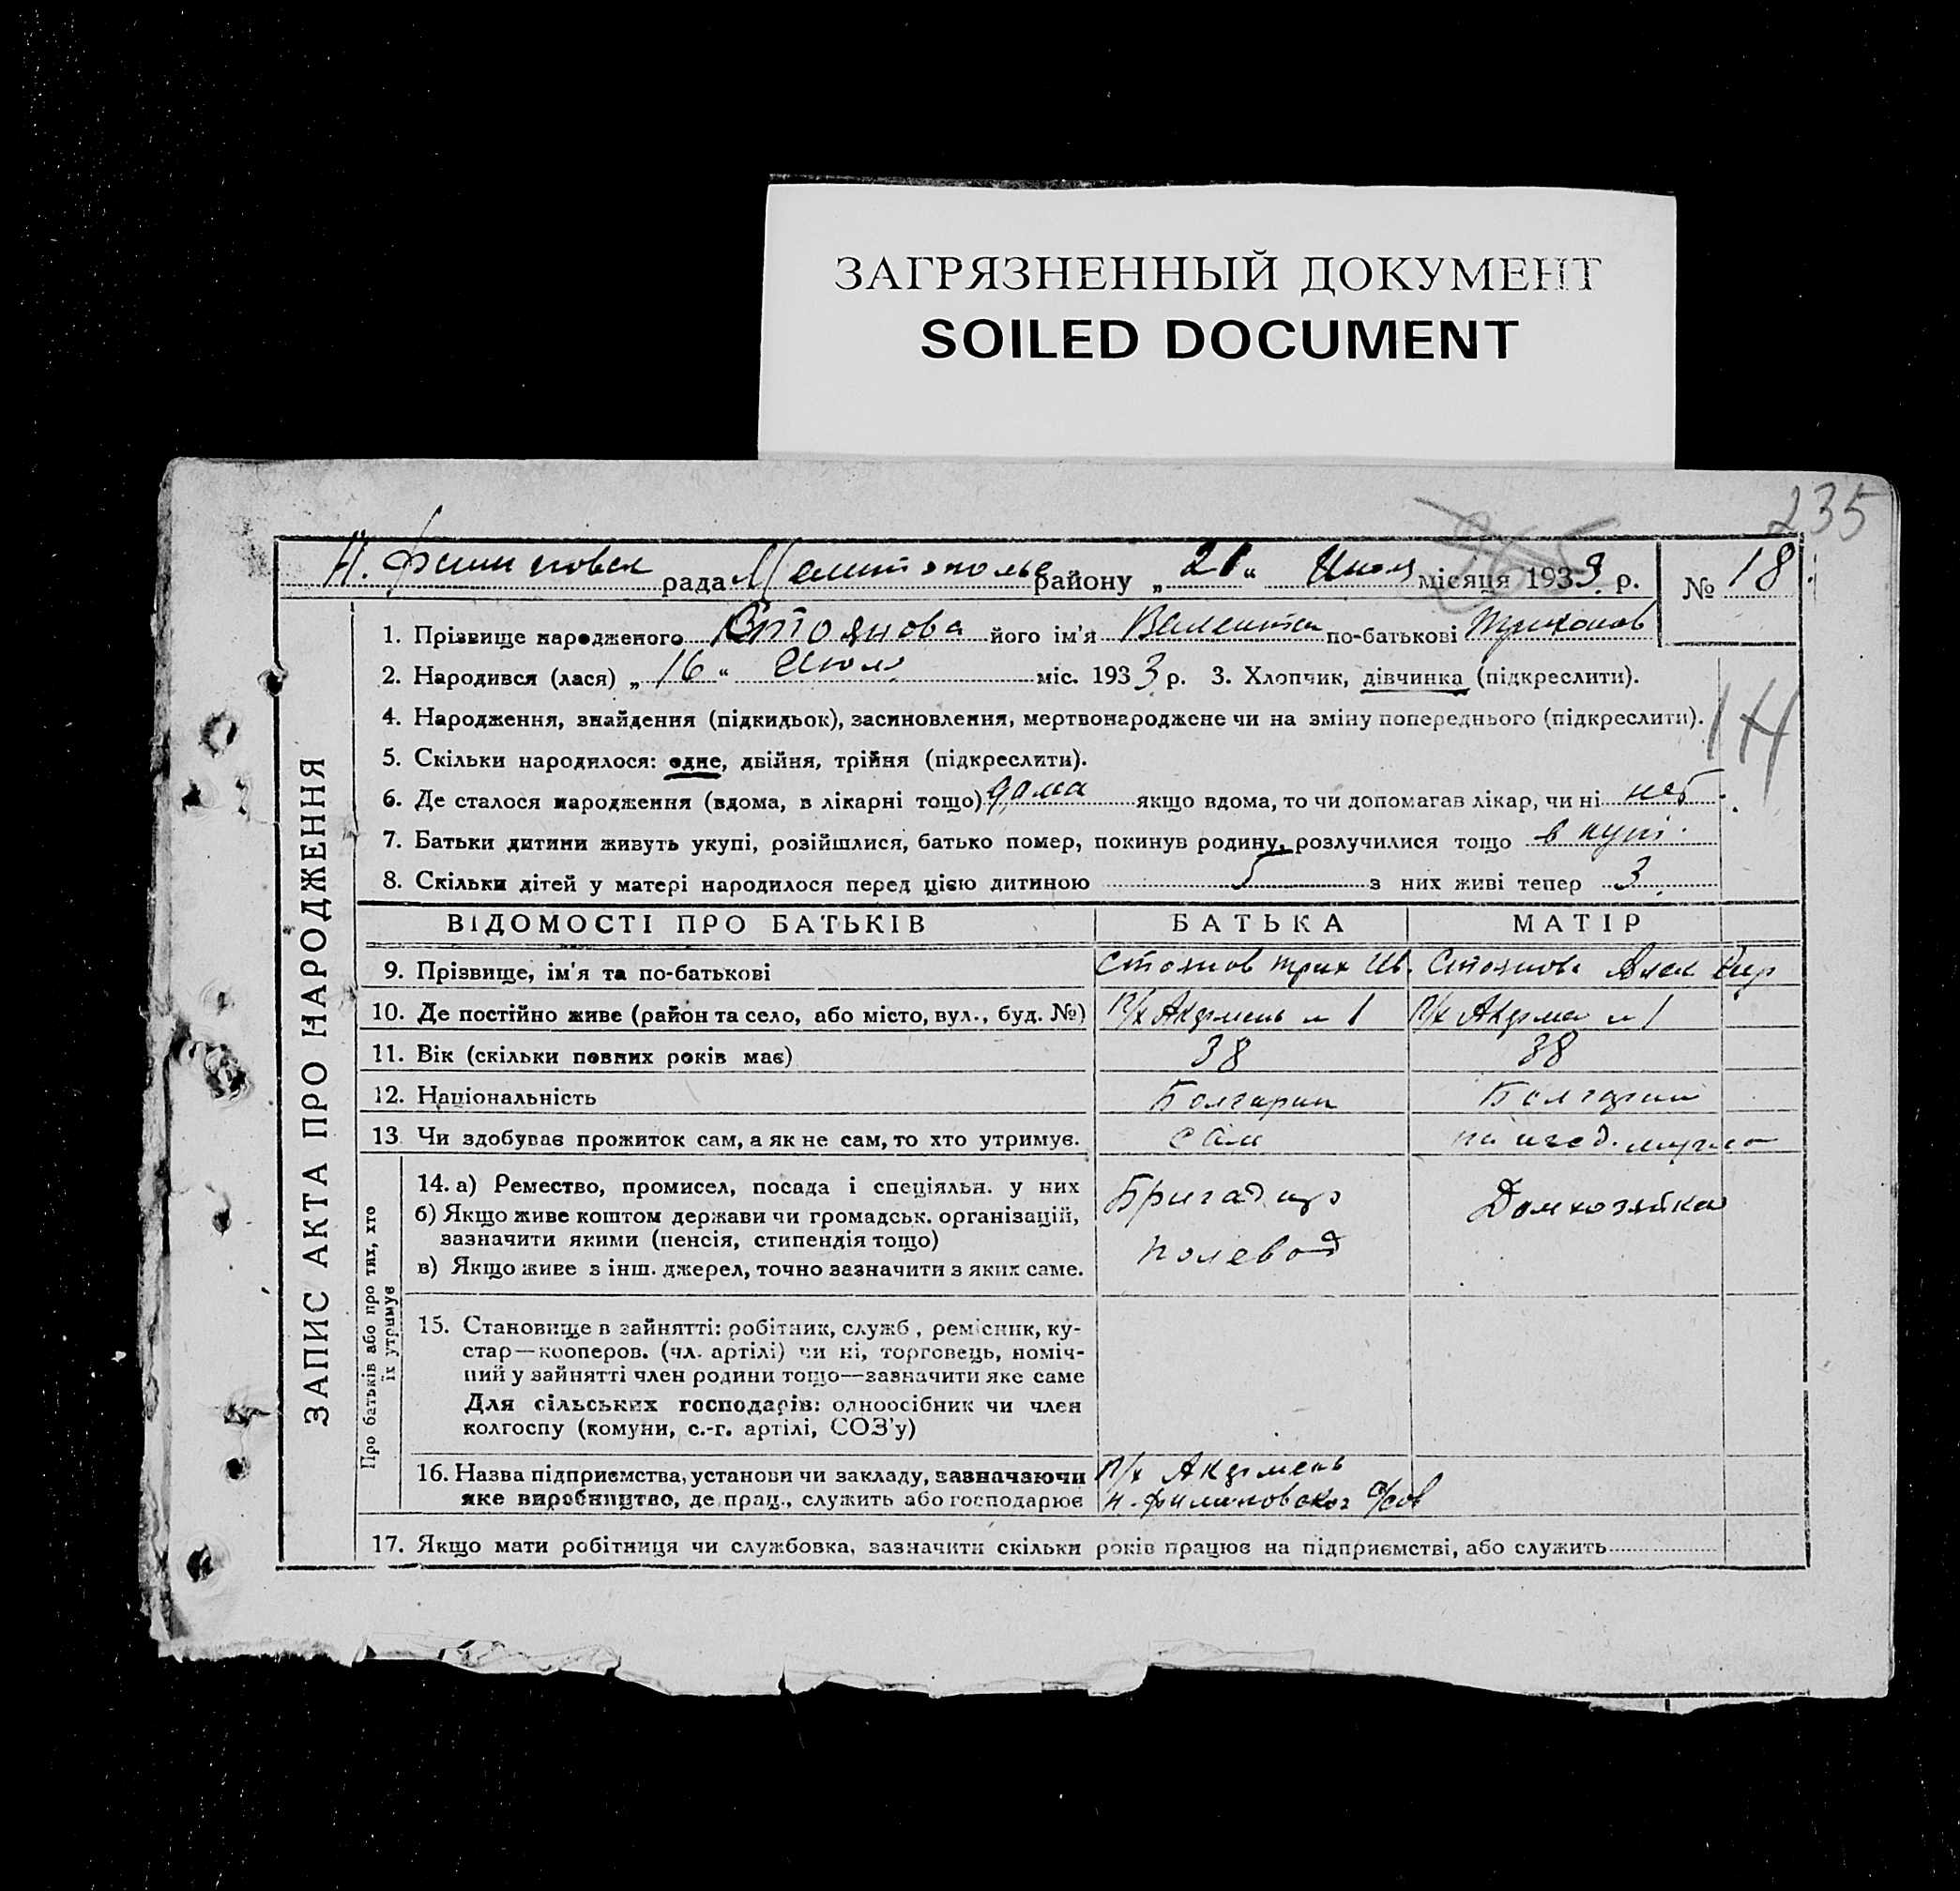 ЗАГРЯЗНЕННЫЙ ДОКУМЕНТ
SOILED DOCUMENT
235
рада Мелитополье району „ 21 “ Июля місяця 1933 р. № 18
1. Прізвище народженого Стоянова його ім'я Валентин по-батькові Трихонов
2. Народився (лася) „ 16 “ Июля міс. 1933 р. 3. Хлопчик, дівчинка (підкреслити).
4. Народження, знайдення (підкидьок), засиновлення, мертвонароджене чи на зміну попереднього (підкреслити).
14
5. Скільки народилося: одне, двійня, трійня (підкреслити).
6. Де сталося народження (вдома, в лікарні тощо) дома якщо вдома, то чи допомагав лікар, чи ні нет
7. Батьки дитини живуть укупі, розійшлися, батько помер, покинув родину, розлучилися тощо в купі
8. Скільки дітей у матері народилося перед цією дитиною 5 з них живі тепер 3
ВІДОМОСТІ ПРО БАТЬКІВ БАТЬКА МАТІР
9. Прізвище, ім'я та по-батькові Стоянов Трих Ив. Стоянова Алек
10. Де постійно живе (район та село, або місто, вул., буд. №)
11. Вік (скільки повних років має) 38 38
12. Національність Болгарин Болгарин
13 Чи здобував прожиток сам, а як не сам, то хто утримує. сам на ижд. мужа
14. а) Ремество, промисел, посада і спеціяльн. у них Бригадир Домхозяйка
б) Якщо живе коштом держави чи громадськ. організацій,
зазначити якими (пенсія, стипендія тощо) полевод
в) Якщо живе з інш. джерел, точно зазначити з яких саме.
15. Становище в зайнятті: робітник, служб., ремісник, ку-
стар—кооперов. (чл. артілі) чи ні, торговець, поміч-
ний у зайнятті член родини тощо—зазначити яке саме
Для сільських господарів: одноосібник чи член
колгоспу (комуни, с.-г. артілі, СОЗ'у)
16. Назва підприємства, установи чи закладу, зазначаючи
яке виробництво, де прац., служить або господарює
17. Якщо мати робітниця чи службовка, зазначити скільки років працює на підприємстві, або служить
ЗАПИС АКТА ПРО НАРОДЖЕННЯ
Про батьків або про тих, хто
їх утримує